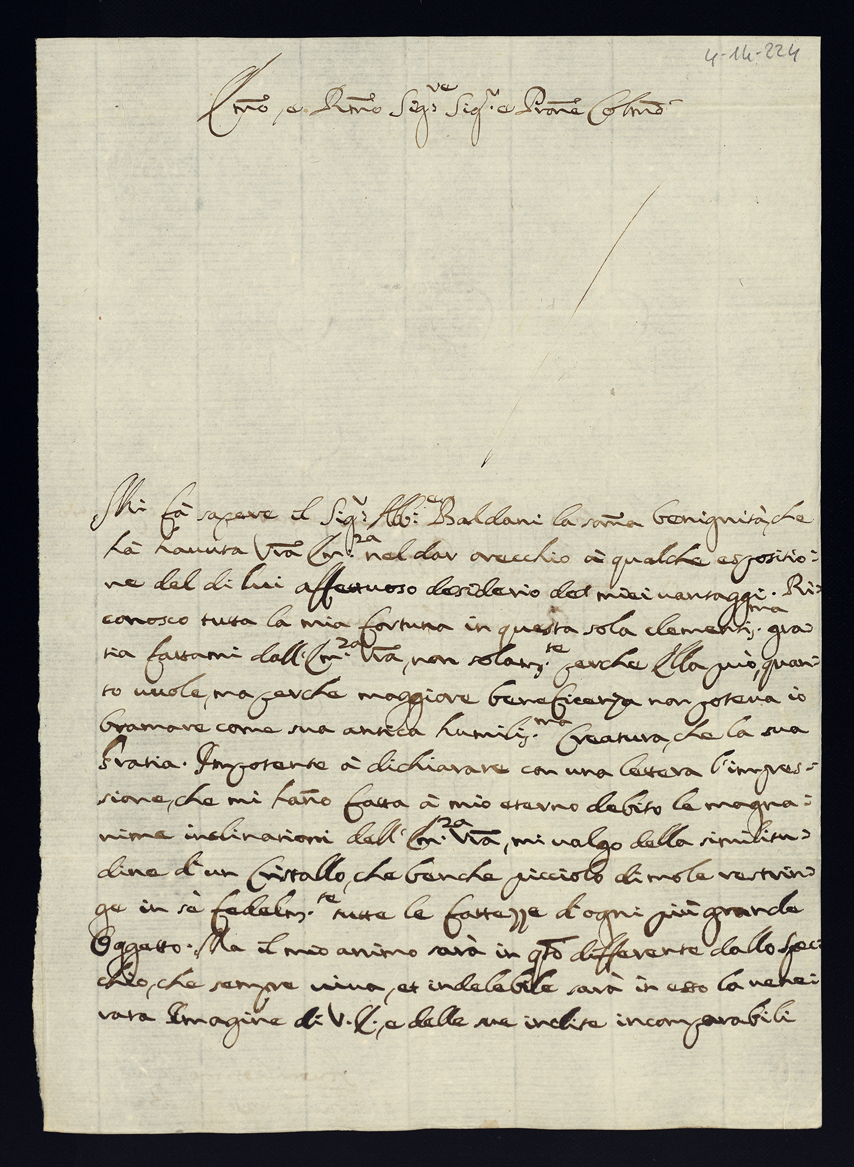 4-14-224
Em̃o, e Rm̃o Sig.ʳᵉ Sig.ʳ e P̃rone Col̃mo
Mi fà sapere il Sig.ʳ Ab.ᵉ Baldani la som̃a benignità, che
hà hauuta Vr̃a Em.ᶻᵃ nel dar orecchio à qualche espositio:
ne del di lui affettuoso desiderio de' miei uantaggi. Ri:
conosco tutta la mia fortuna in questa sola clementiss.ᵐᵃ gra:
tia fattami dall'Em.ᶻᵃ Vr̃a, non solam.ᵗᵉ perche Ella può, quan:
to uuole, ma perche maggiore beneficenza non poteua io
bramare come sua antica humiliss.ᵐᵃ Creatura, che la sua
Gratia. Impotente à dichiarare con una lettera l'impres:
sione, che mi han̄o fatta à mio eterno debito le magna:
nime inclinationi dell'Em.ᶻᵃ Vr̃a, mi ualgo della similitu:
dine d'un Cristallo, che benche picciolo di mole restrin:
ge in sè fedelm.ᵗᵉ tutte le fattezze d'ogni più grande
Oggetto. Ma il mio animo sarà in qt̃o differente dallo Spec:
chio, che sempre uiua, et indelebile sarà in esso la uene:
rata Imagine di V. E., e delle sue inclite incomparabili